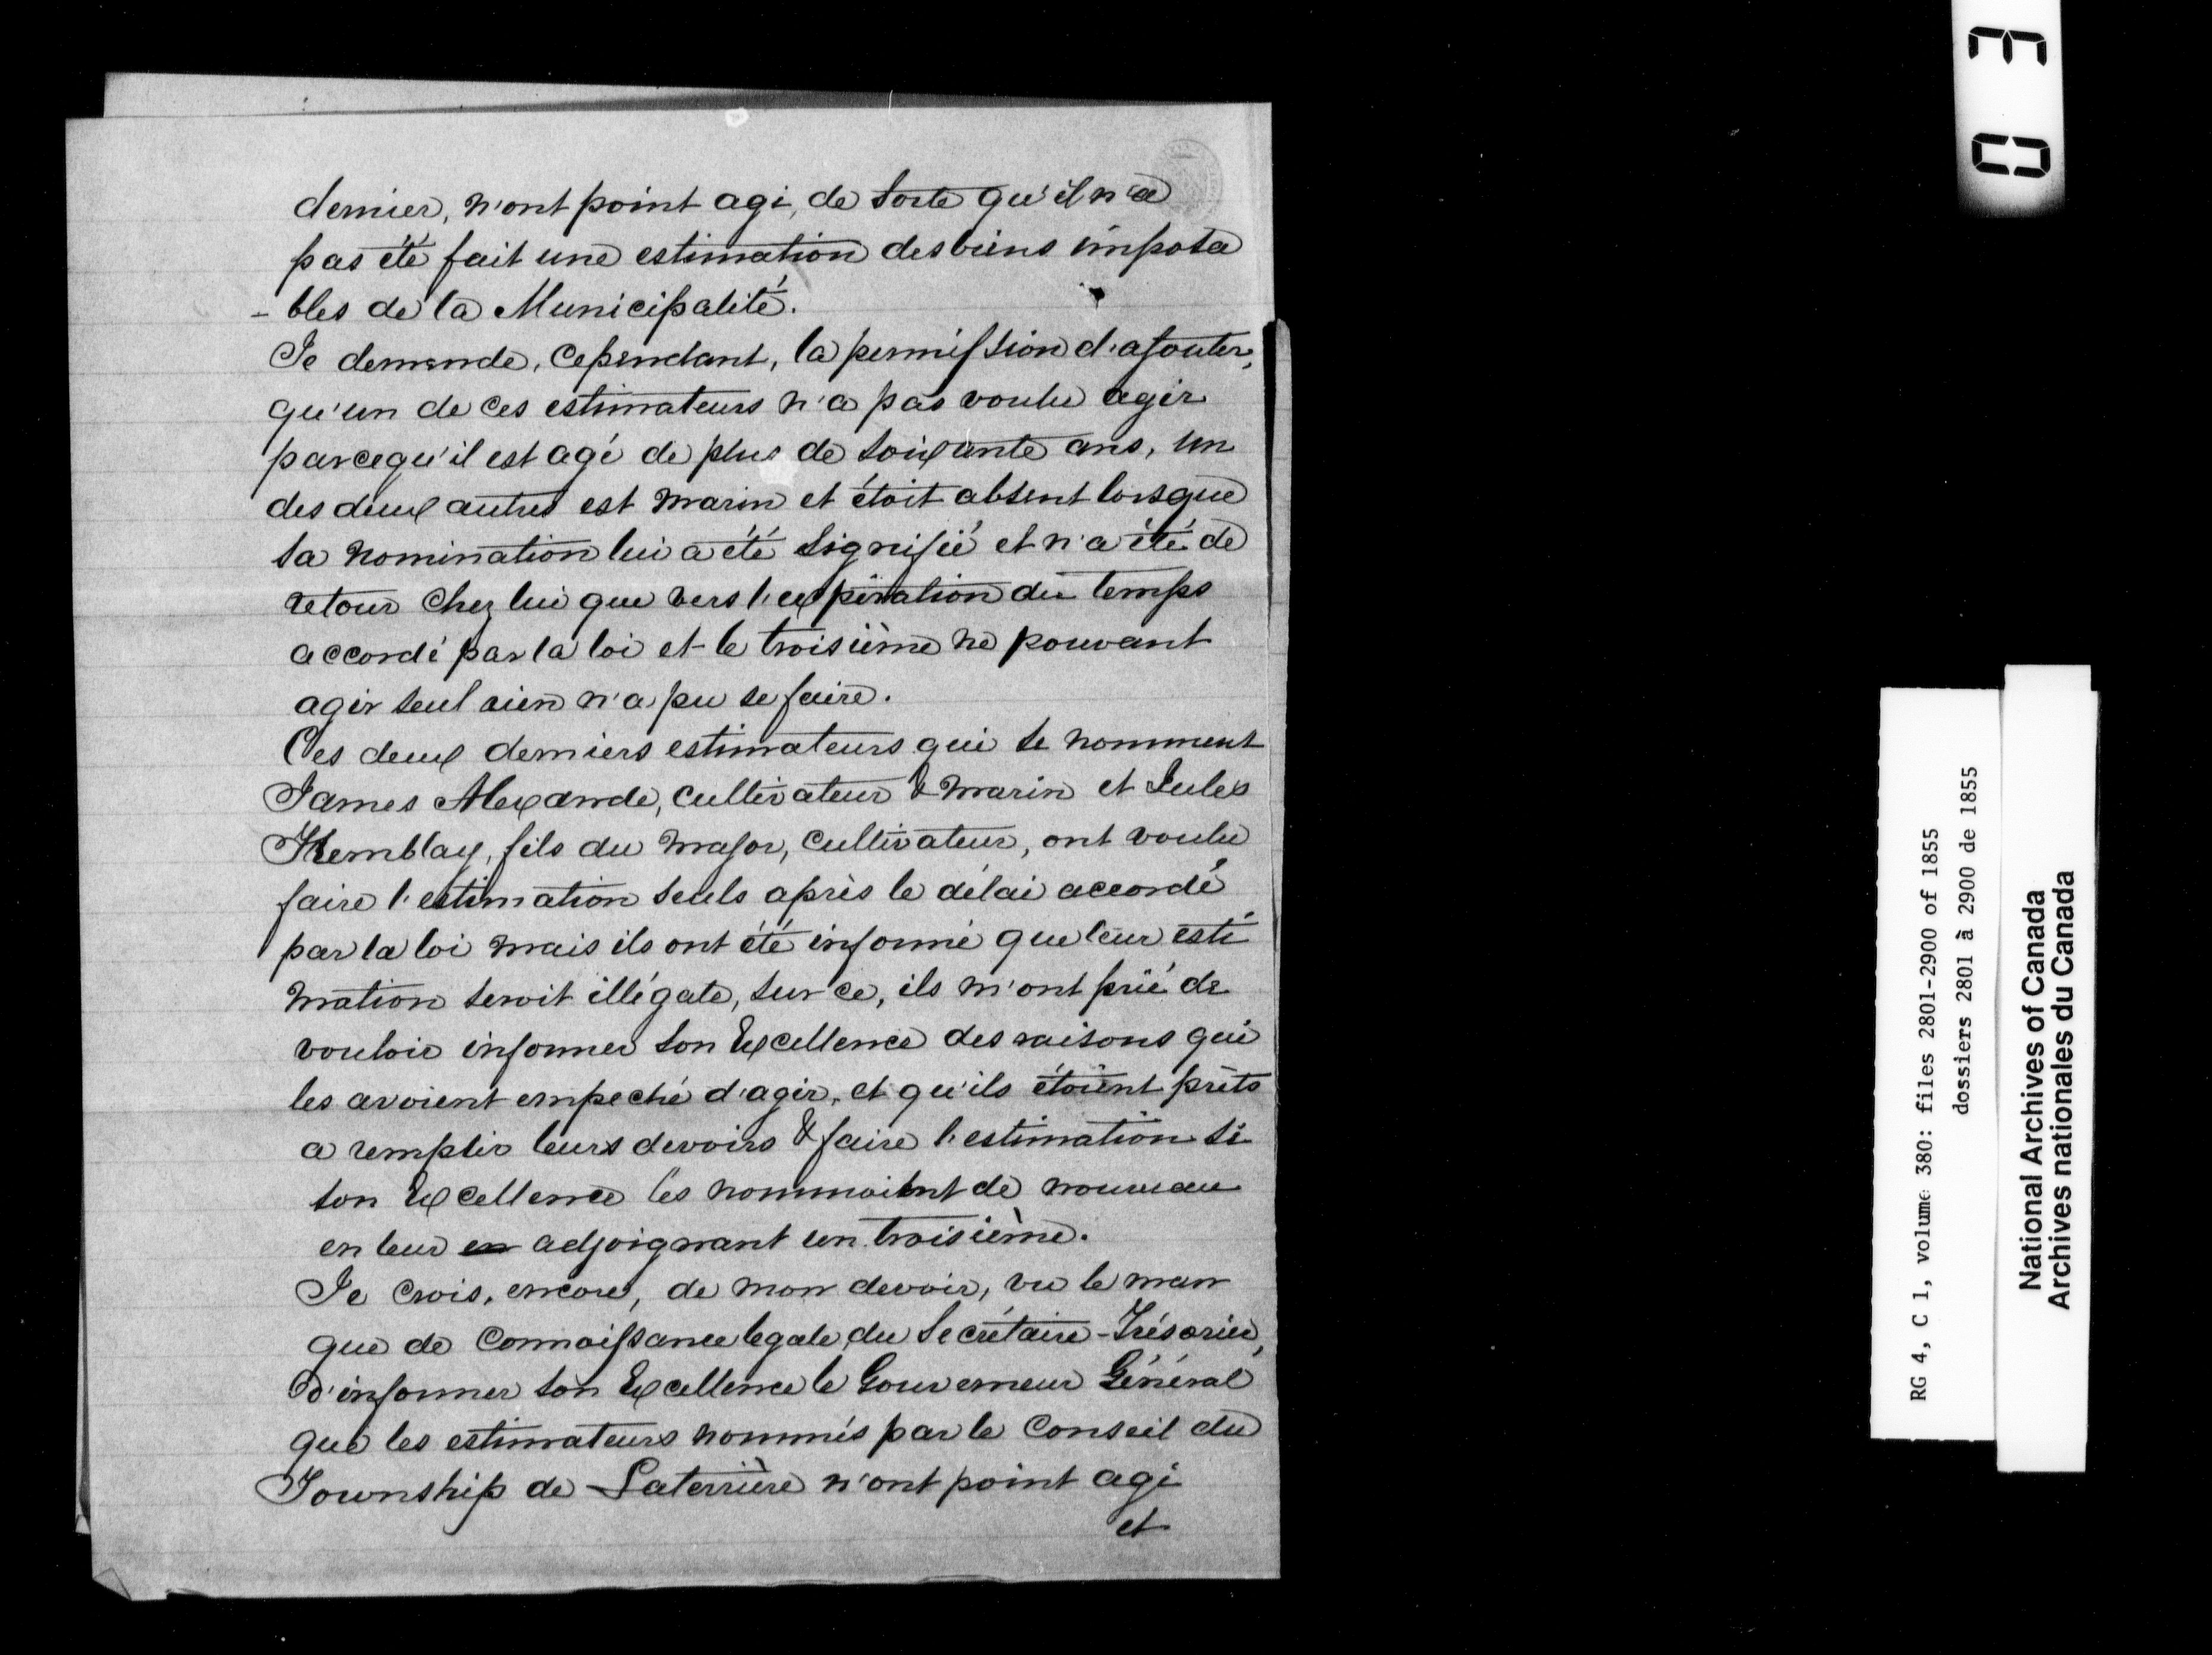 dernier, n'ont point agi, de sorte qu'il n'a
pas été fait une estimation des biens imposa
- bles de la Municipalité.
Je demande, cependant, la permission d'ajouter,
qu'un de ces estimateurs n'a pas voulu agir
parcequ'il est agé de plus de soixante ans, un
des deux autres est marin et étoit absent lorsque
sa nomination lui a été signifié et n'a été de
retour chez lui que vers l'expiration du temps
accordé par la loi et le troisième ne pouvant
agir seul rien n'a pu se faire.
Ces deux derniers estimateurs qui se nomment
James Alexandre, cultivateur & marin et Jules
Tremblay, fils du major, cultivateur, ont voulu
faire l'estimation seuls après le délai accordé
par la loi mais ils ont été informé que leur esti
mation seroit illégale, sur ce, ils m'ont prié de
vouloir informer son Excellence des raisons qui
les avoient empeché d'agir, et qu'ils étoient prêts
a remplir leurs devoirs & faire l'estimation si
son Excellence les nommoient de nouveau
en leur en adjoignant un troisième.
Je crois, encore, de mon devoir, vu le man
que de connaissance legale du Secrétaire-Trésorier,
d'informer son Excellence le Gouverneur Général
que les estimateurs nommés par le Conseil du
Township de Laterrière n'ont point agi
et
03
RG 4, C 1, volume 380: files 2801-2900 of 1855
dossiers 2801 à 2900 de 1855
National Archives of Canada
Archives nationales du Canada